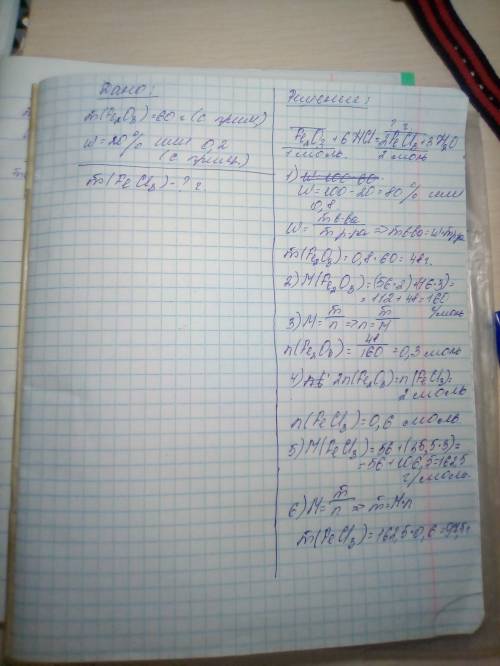 Дано:
m(Fe₂O₃)=60г (с прим.)
w=20% или 0,2
(с прим.)
m(FeCl₃)-? г
Решение:
? г
Fe₂O₃+6HCl=2FeCl₃+3H₂O
1 моль 2 моль
1)
W=100-20=80% или
0,8
W= m в-ва / m р-ра => m в-ва=w·m р-ра
m(Fe₂O₃)=0,8·60=48г.
2) M(Fe₂O₃)=(56·2)+(16·3)=
=112+48=160
г/моль
3) M= m/n => n= m/M
n(Fe₂O₃)= 48/160 =0,3 моль
4) 2n(Fe₂O₃)=n(FeCl₃)=
2 моль
n(FeCl₃)=0,6 моль.
5) M(FeCl₃)=56+(35,5·3)=
=56+106,5=162,5
г/моль.
6) M= m/n => m=M·n
m(FeCl₃)=162,5·0,6=97,5г